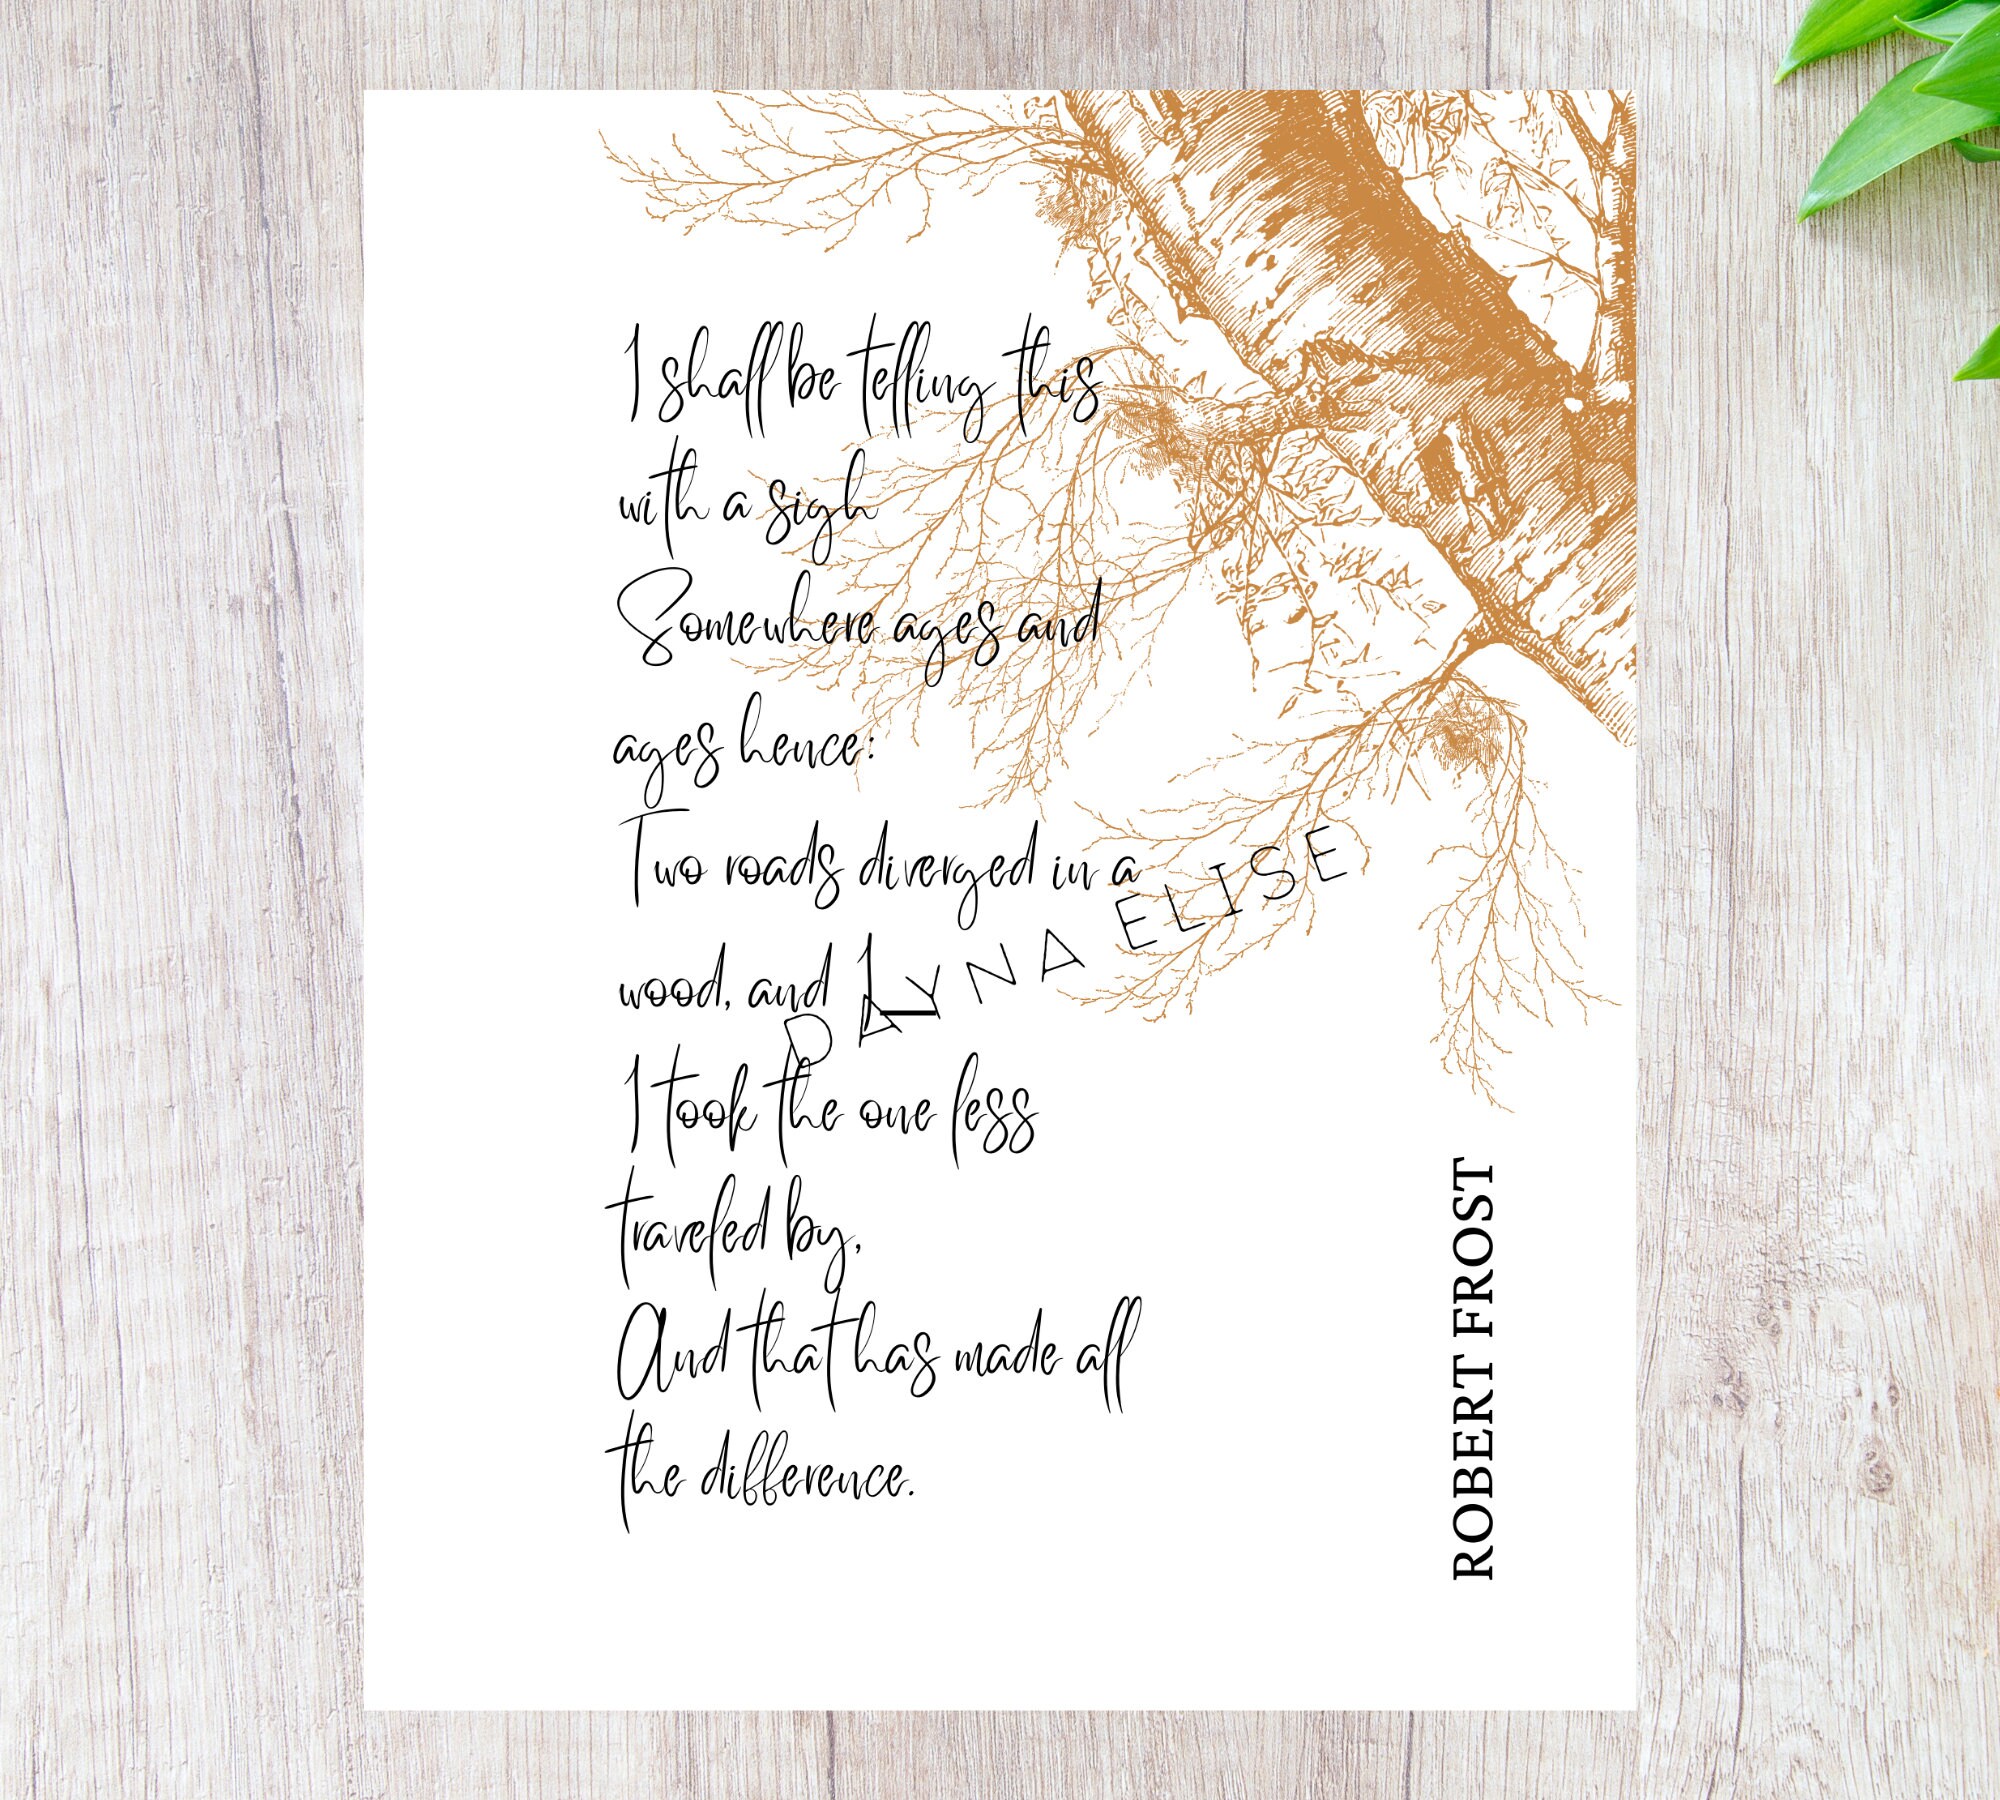 I shall be telling this
with a sigh
Somewhere ages and
ages hence:
Two roads diverged in a
wood, and I—
I took the one less
traveled by,
And that has made all
the difference.
DAYNA ELISE
ROBERT FROST